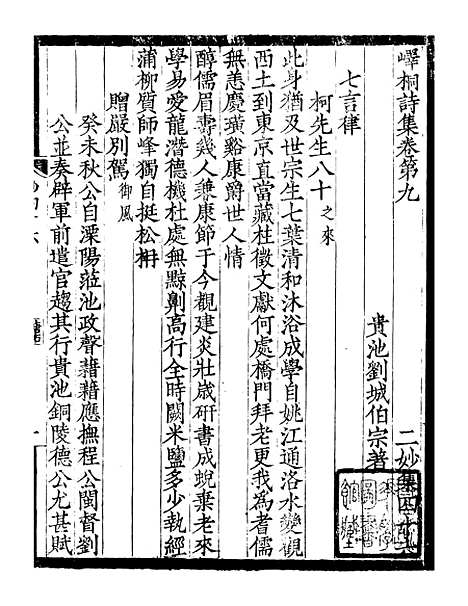 嶧桐詩集卷第九
二妙集四十九
貴池劉城伯宗著
七言律
柯先生八十之來
此身猶及世宗生七葉清和沐浴成學自姚江通洛水變觀
西土到東京直當藏柱徵文獻何處橋門拜老更我為耆儒
無恙慶璜谿康爵世人情
醇儒眉壽幾人兼康節于今觀建炎壯歲研書成蛻棄老來
學易愛龍潛德機杜處無黥劓高行全時闕米鹽多少執經
蒲柳質師峰獨自挺松枏
贈嚴別駕御風
癸未秋公自溧陽蒞池政聲藉藉應撫程公閩督劉
公並奏辟軍前遣官趨其行貴池銅陵德公尤甚賦